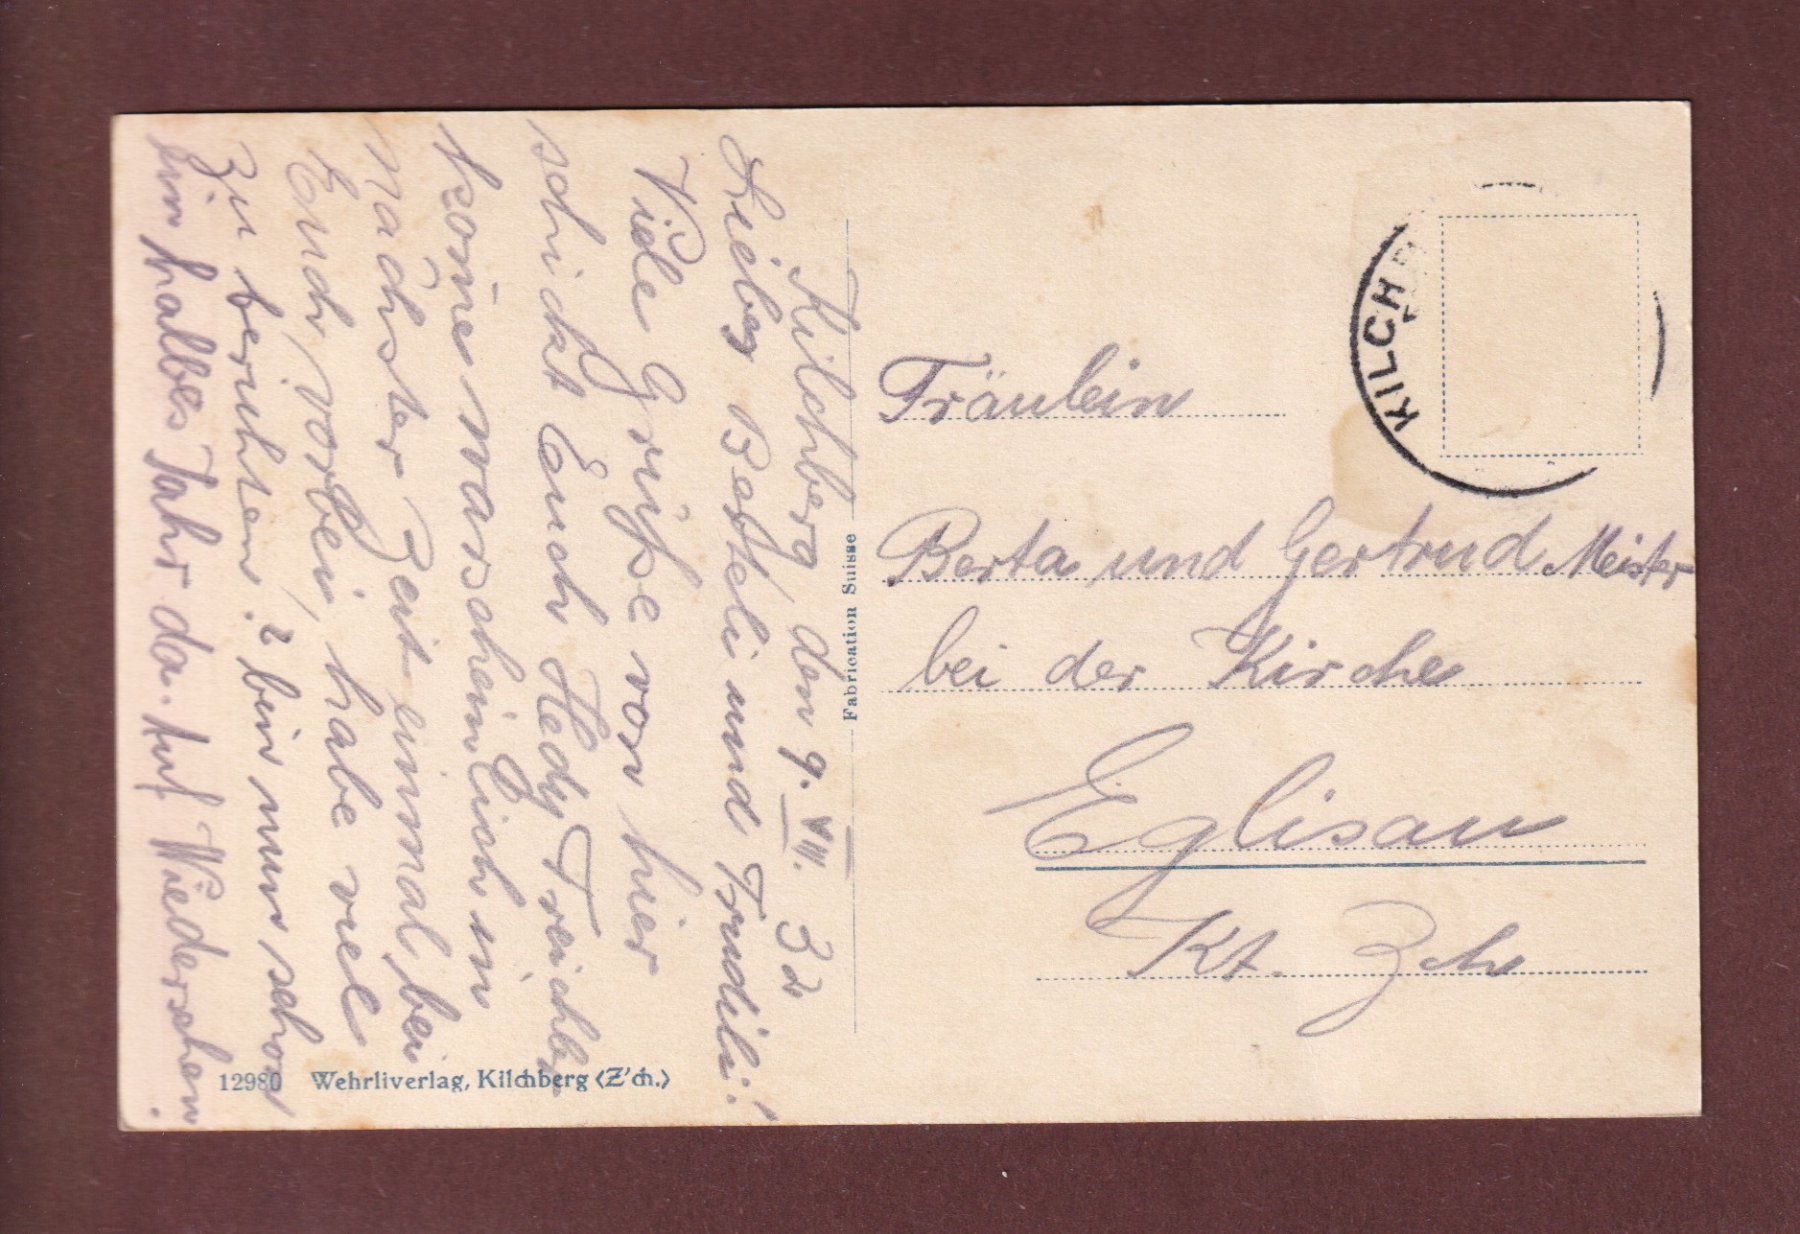 Kilchberg, den 9. VII. 32
Liebes Berteli und Trudili!
Viele Grüße von hier
schickt Euch Hedy Treichler
kom̅e warscheinlich in
nächster Zeit einmal bei
Euch vorbei, habe viel
zu berichten. bin nun schon
ein halbes Jahr da. Auf Wiedersehen.
12980 Wehrliverlag, Kilchberg (Z'ch.)
Fabrication Suisse
KILCHB
Fräulein
Berta und Gertrud Meister
bei der Kirche
Eglisau
Kt. Zch